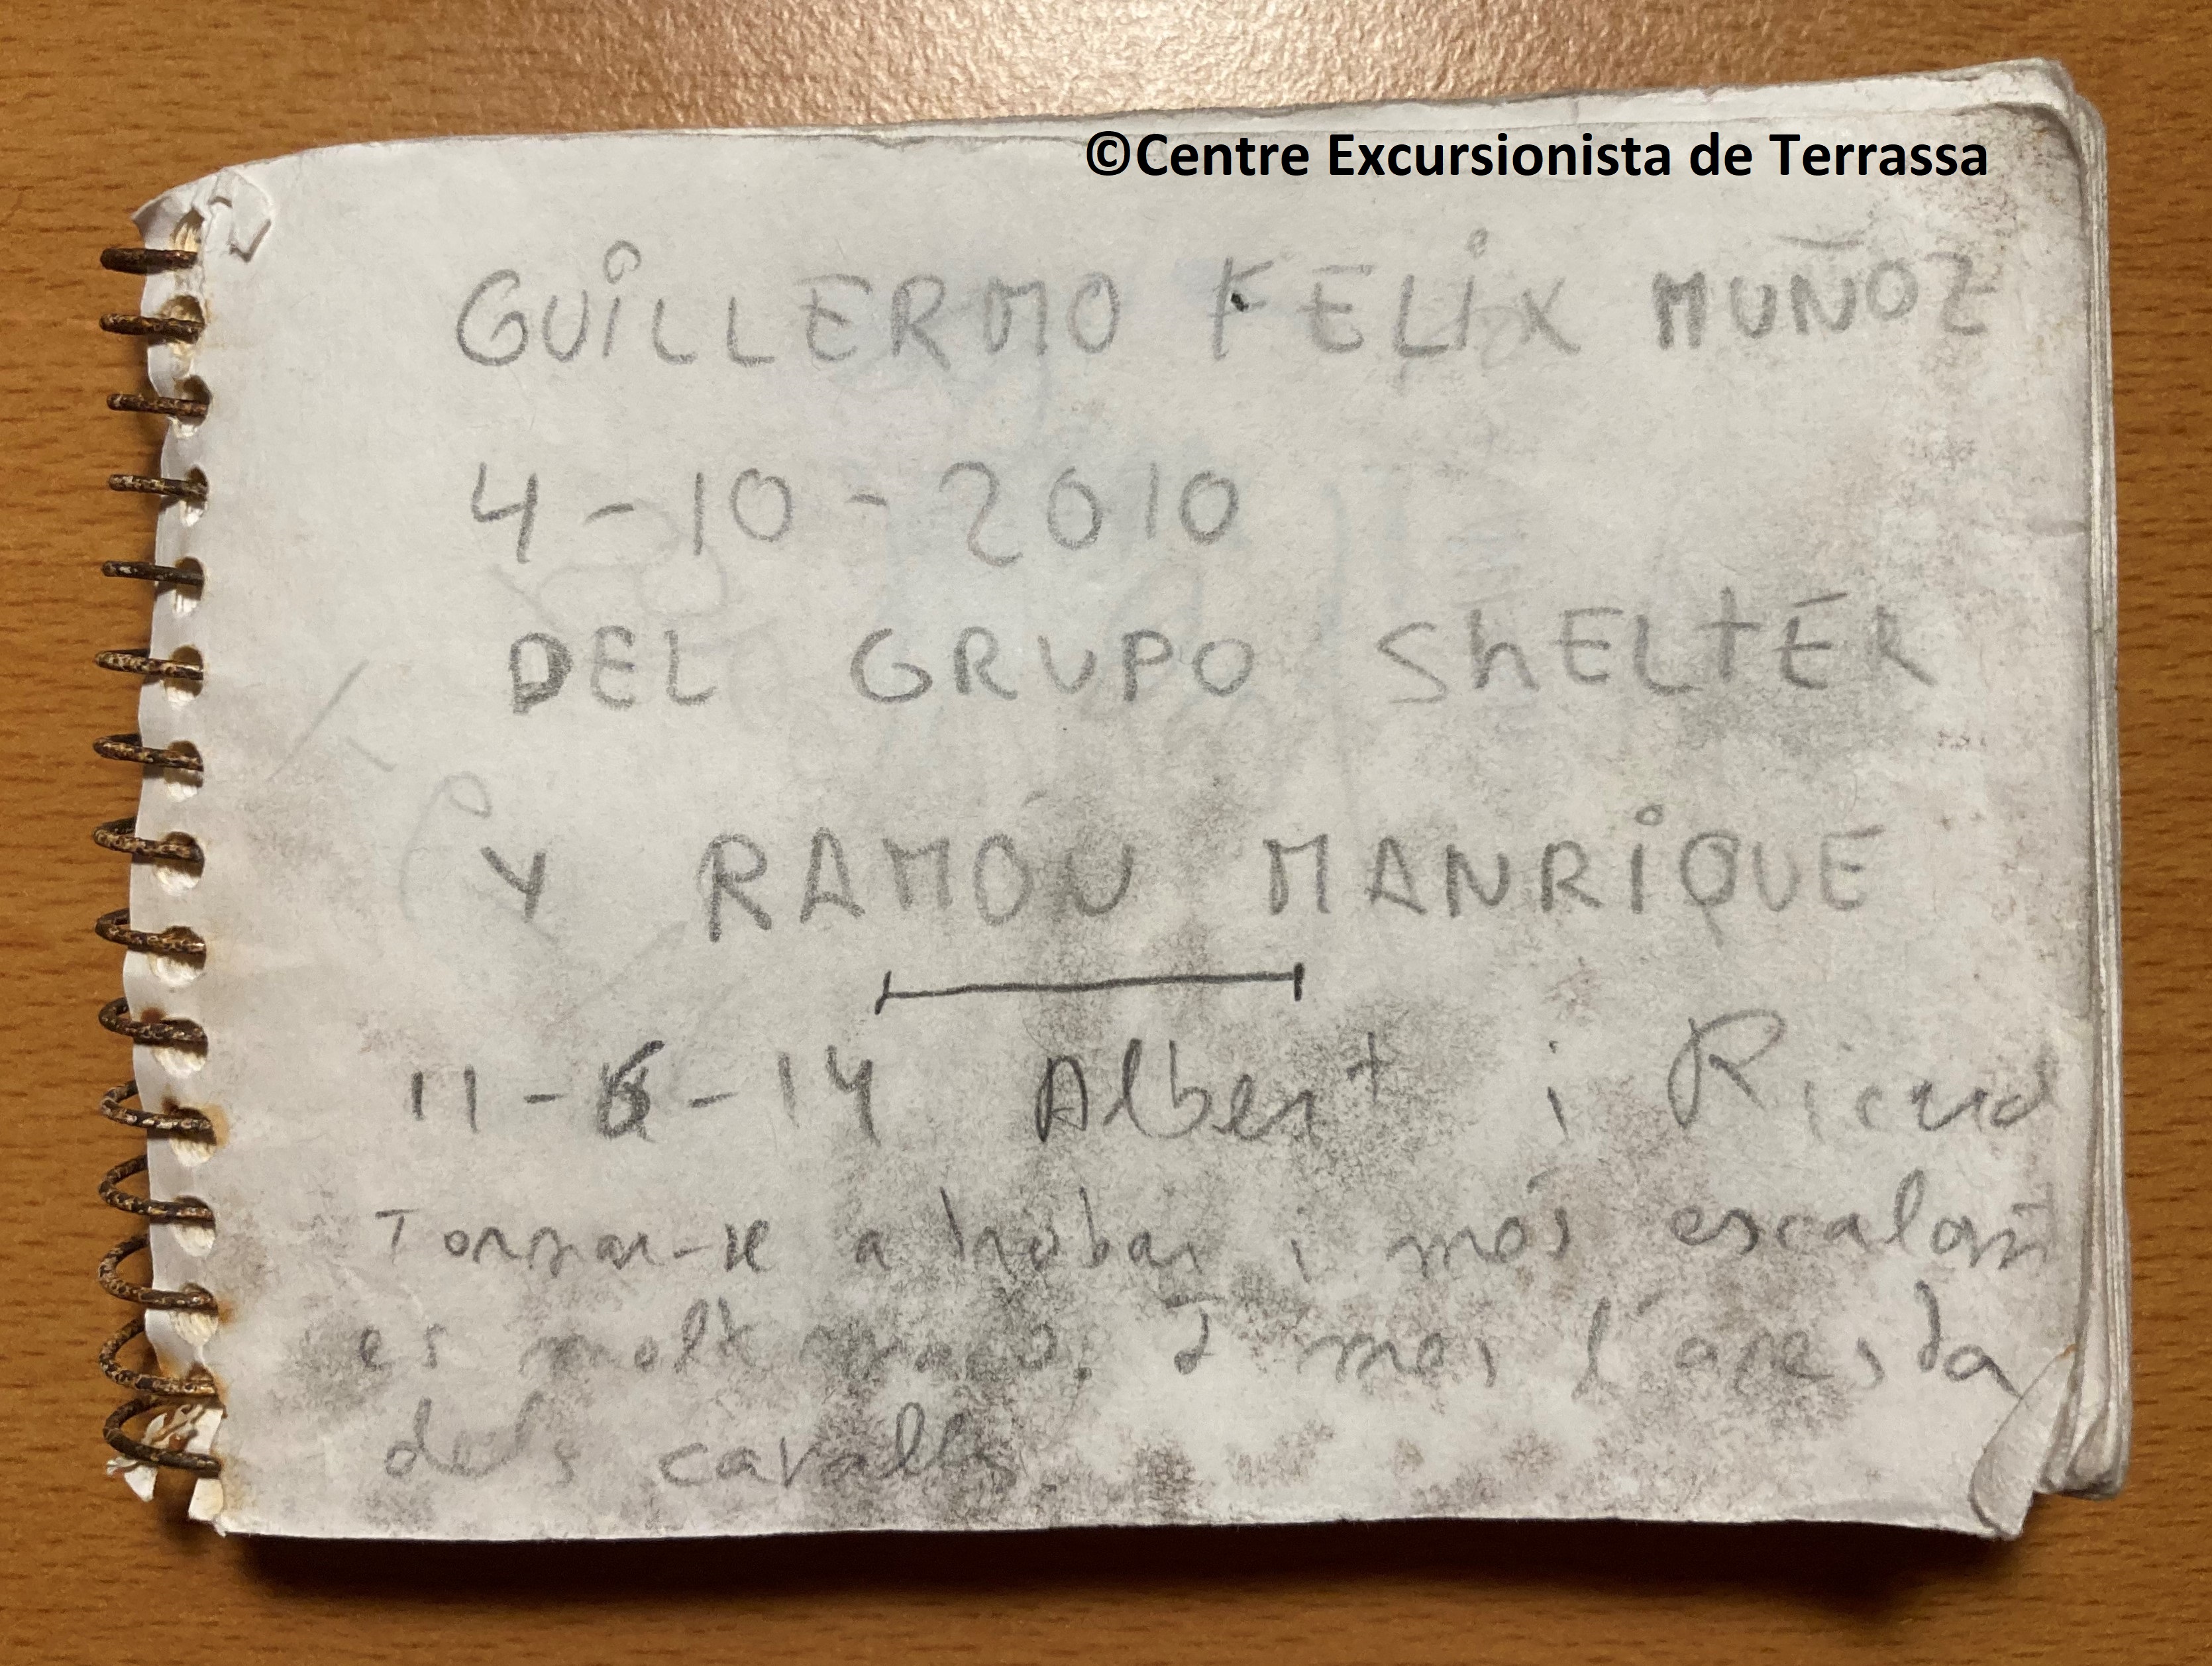 ©Centre Excursionista de Terrassa
GUiLLERMO FELiX MUÑOZ
4-10-2010
DEL GRUPO ShELtER
Y RAMÓN MANRiQUE
11-6-14 Albert i Ricard
Tornar-se a trobar i més escalant
es molt maco. I mes l'aresta
dels cavalls.